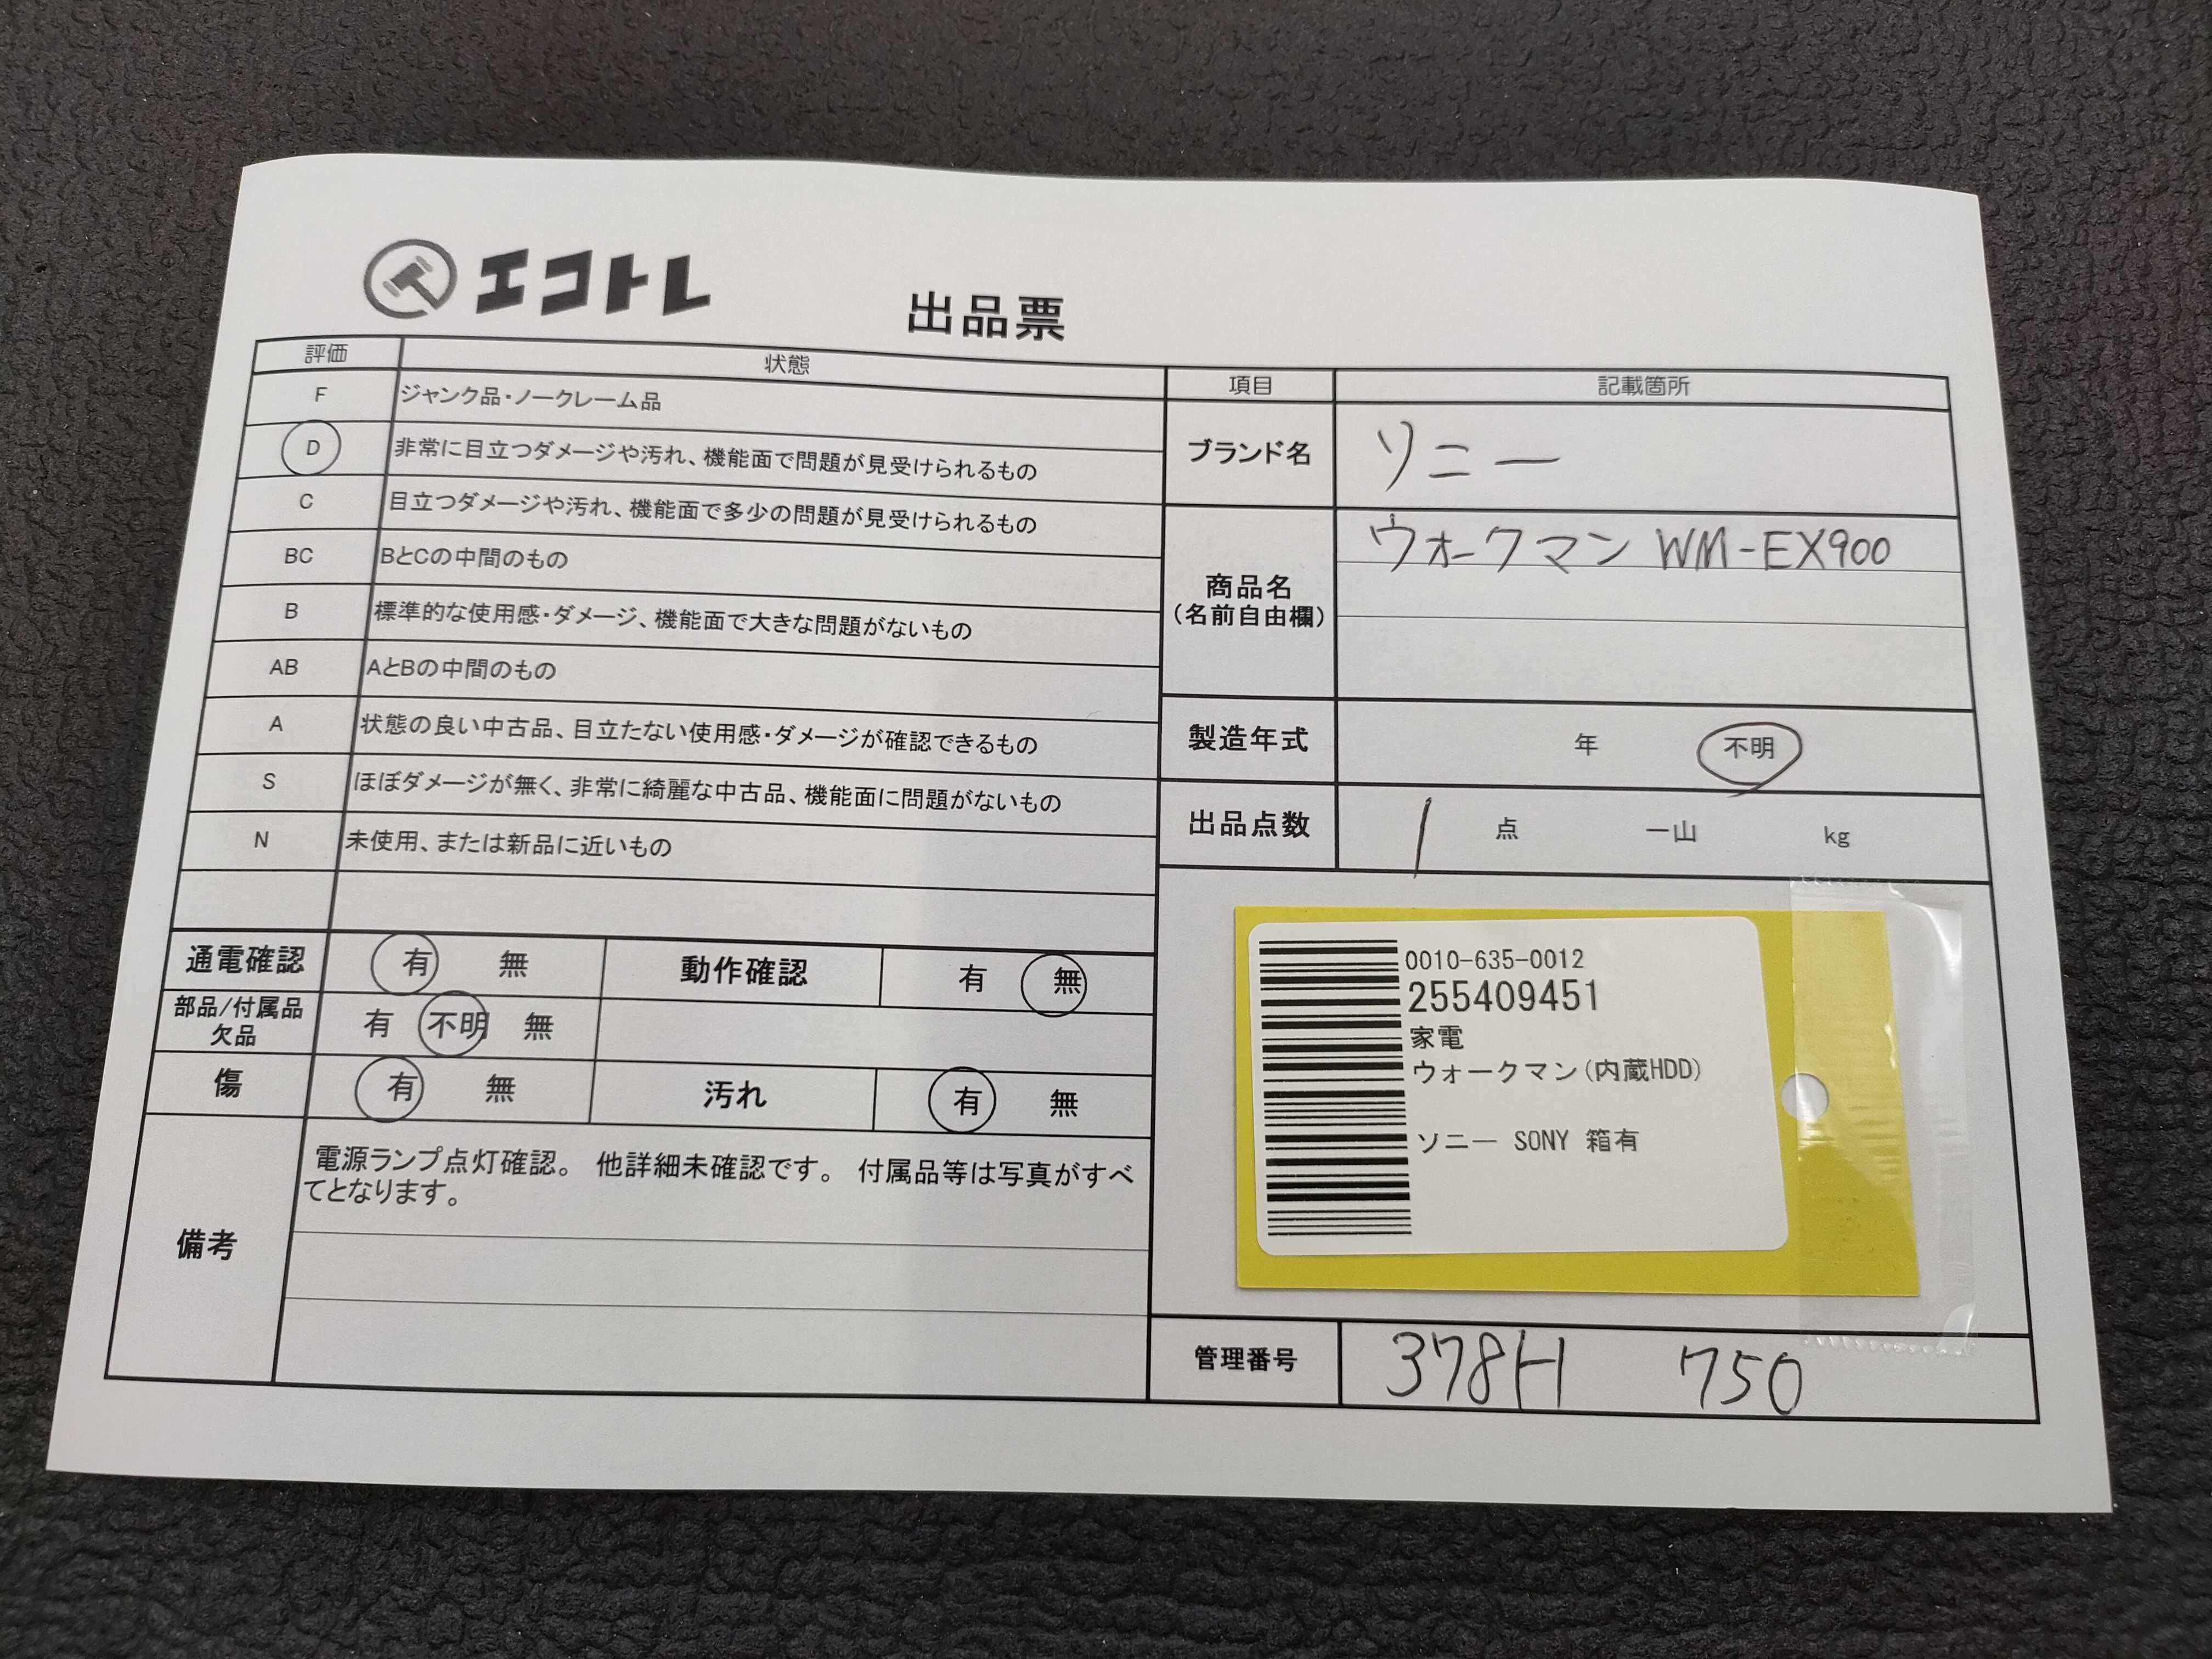 エコトレ
出品票
評価 状態
F ジャンク品・ノークレーム品
D 非常に目立つダメージや汚れ、機能面で問題が見受けられるもの
C 目立つダメージや汚れ、機能面で多少の問題が見受けられるもの
BC BとCの中間のもの
B 標準的な使用感・ダメージ、機能面で大きな問題がないもの
AB AとBの中間のもの
A 状態の良い中古品、目立たない使用感・ダメージが確認できるもの
S ほぼダメージが無く、非常に綺麗な中古品、機能面に問題がないもの
N 未使用、または新品に近いもの
通電確認 有 無 動作確認 有 無
部品/付属品
欠品
有 不明 無
傷 有 無 汚れ 有 無
備考
電源ランプ点灯確認。 他詳細未確認です。 付属品等は写真がすべ
てとなります。
項目 記載箇所
ブランド名 ソニー
商品名
(名前自由欄)
ウォークマン WM-EX900
製造年式 年 不明
出品点数 1 点 一山 kg
0010-635-0012
255409451
家電
ウォークマン(内蔵HDD)
ソニー SONY 箱有
管理番号 378H 750